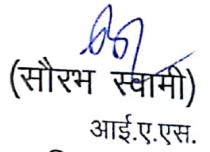 (सौरभ स्वामी)
आई.ए.एस.